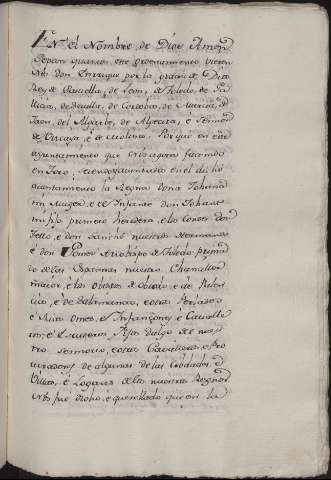 En el Nombre, de Dios Amen
Sepan quantos este ordenamiento vieren
Nos don Enrrique por la gracia de Dios
Rey de Castiella, de Leon, de Toledo, de Ga
llicia, de Sevilla, de Cordoba, de Murcia, de
Jaen, del Algarbe, de Algecira, é Sennor
de Vizcaya, é de Molina. Porque en este
ayuntamiento que Nos agora facemos
en Toro, seiendo ayuntados en el dicho
ayuntamiento la Regna dona Johana
mi Muger, é el Infante don Johan
mi fijo primero heredero, é los Condes don
Tello, é don Sancho nuestros Hermanos
é don Gomez Arzobispo de Toledo prima
do de las Espannas nuestro Chanciller
maior, é los obispos de Oviedo, é de Palen
cia, é de Salamanca, é otros Perlados
é Ricos Omes, é Infanzones, é Cavalle
ros, é Escuderos Fijos dalgo de nues
tro Sennorio, é otros Cavalleros, é Pro
curadores de algunas de las Cibdades, é
Villas, é Logares de los nuestros Regnos
Nos fué dicho, é querellado que en la